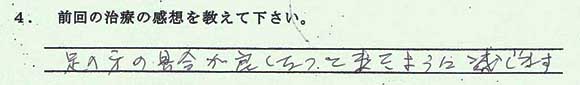 4. 前回の治療の感想を教えて下さい。
足の方の具合が良くなって来たように感じます